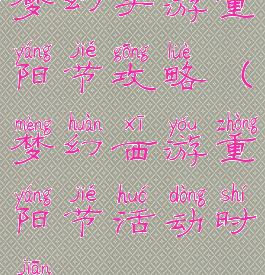 梦幻西游重
yáng jié gōng lüè
阳节攻略（
mèng huàn xī yóu zhòng
梦幻西游重
yáng jié huó dòng shí
阳节活动时
jiān